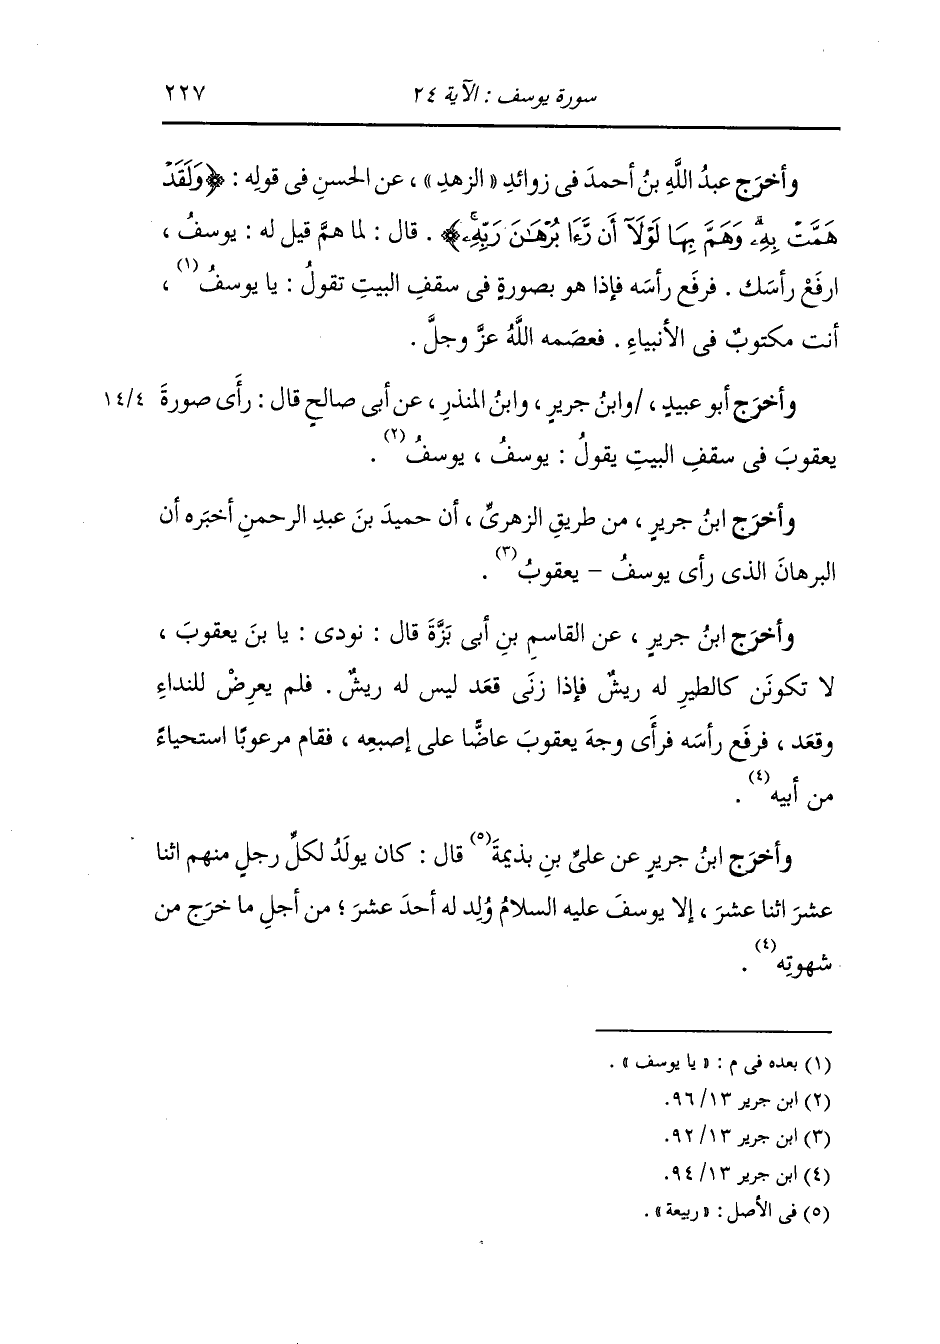 سورة يوسف : الآية ٢٤ ٢٢٧
وأخرَج عبدُ اللَّهِ بنُ أحمدَ فى زوائدِ « الزهدِ » ، عن الحسنِ فى قولِه : ﴿وَلَقَدْ
هَمَّتْ بِهِۦۖ وَهَمَّ بِهَا لَوْلَآ أَن رَّءَا بُرْهَٰنَ رَبِّهِۦۚ﴾ . قال : لما همَّ قيل له : يوسفُ ،
ارفَعْ رأسَك . فرفَع رأسَه فإذا هو بصورةٍ فى سقفِ البيتِ تقولُ : يا يوسفُ (١) ،
أنت مكتوبٌ فى الأنبياءِ . فعصَمه اللَّهُ عزَّ وجلَّ .
وأخرَج أبو عبيدٍ ، /وابنُ جريرٍ ، وابنُ المنذرِ ، عن أبى صالحٍ قال : رأَى صورةَ ١٤/٤
يعقوبَ فى سقفِ البيتِ يقولُ : يوسفُ ، يوسفُ (٢) .
وأخرَج ابنُ جريرٍ ، من طريقِ الزهرىِّ ، أن حميدَ بنَ عبدِ الرحمنِ أخبَره أن
البرهانَ الذى رأى يوسفُ – يعقوبُ (٣) .
وأخرَج ابنُ جريرٍ ، عن القاسمِ بنِ أبى بَزَّةَ قال : نودى : يا بنَ يعقوبَ ،
لا تكونَن كالطيرِ له ريشٌ فإذا زنَى قعَد ليس له ريشٌ . فلم يعرِضْ للنداءِ
وقعَد ، فرفَع رأسَه فرأَى وجهَ يعقوبَ عاضًّا على إصبعِه ، فقام مرعوبًا استحياءً
من أبيه (٤) .
وأخرَج ابنُ جريرٍ عن علىِّ بنِ بذيمةَ (٥) قال : كان يولَدُ لكلِّ رجلٍ منهم اثنا
عشرَ اثنا عشرَ ، إلا يوسفَ عليه السلامُ وُلِد له أحدَ عشرَ ؛ من أجلِ ما خرَج من
شهوتِه (٤) .
(١) بعده فى م : « يا يوسف » .
(٢) ابن جرير ١٣/ ٩٦.
(٣) ابن جرير ١٣/ ٩٢.
(٤) ابن جرير ١٣/ ٩٤.
(٥) فى الأصل : « ربيعة » .